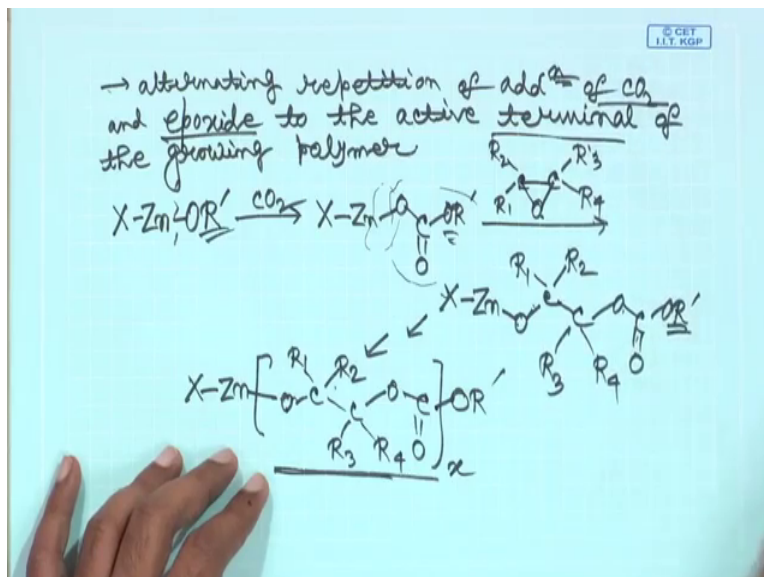 © CET
I.I.T. KGP
→ alternating repetition of addn of CO2
and epoxide to the active terminal of
the growing polymer
R2 R'3
R1 O R4
X-Zn-OR' CO2 X-Zn O C OR
O
R1 R2
X-Zn O C C O C OR'
R3 R4 O
R1 R2
X-Zn [ O C C O C ] OR'
R3 R4 O x